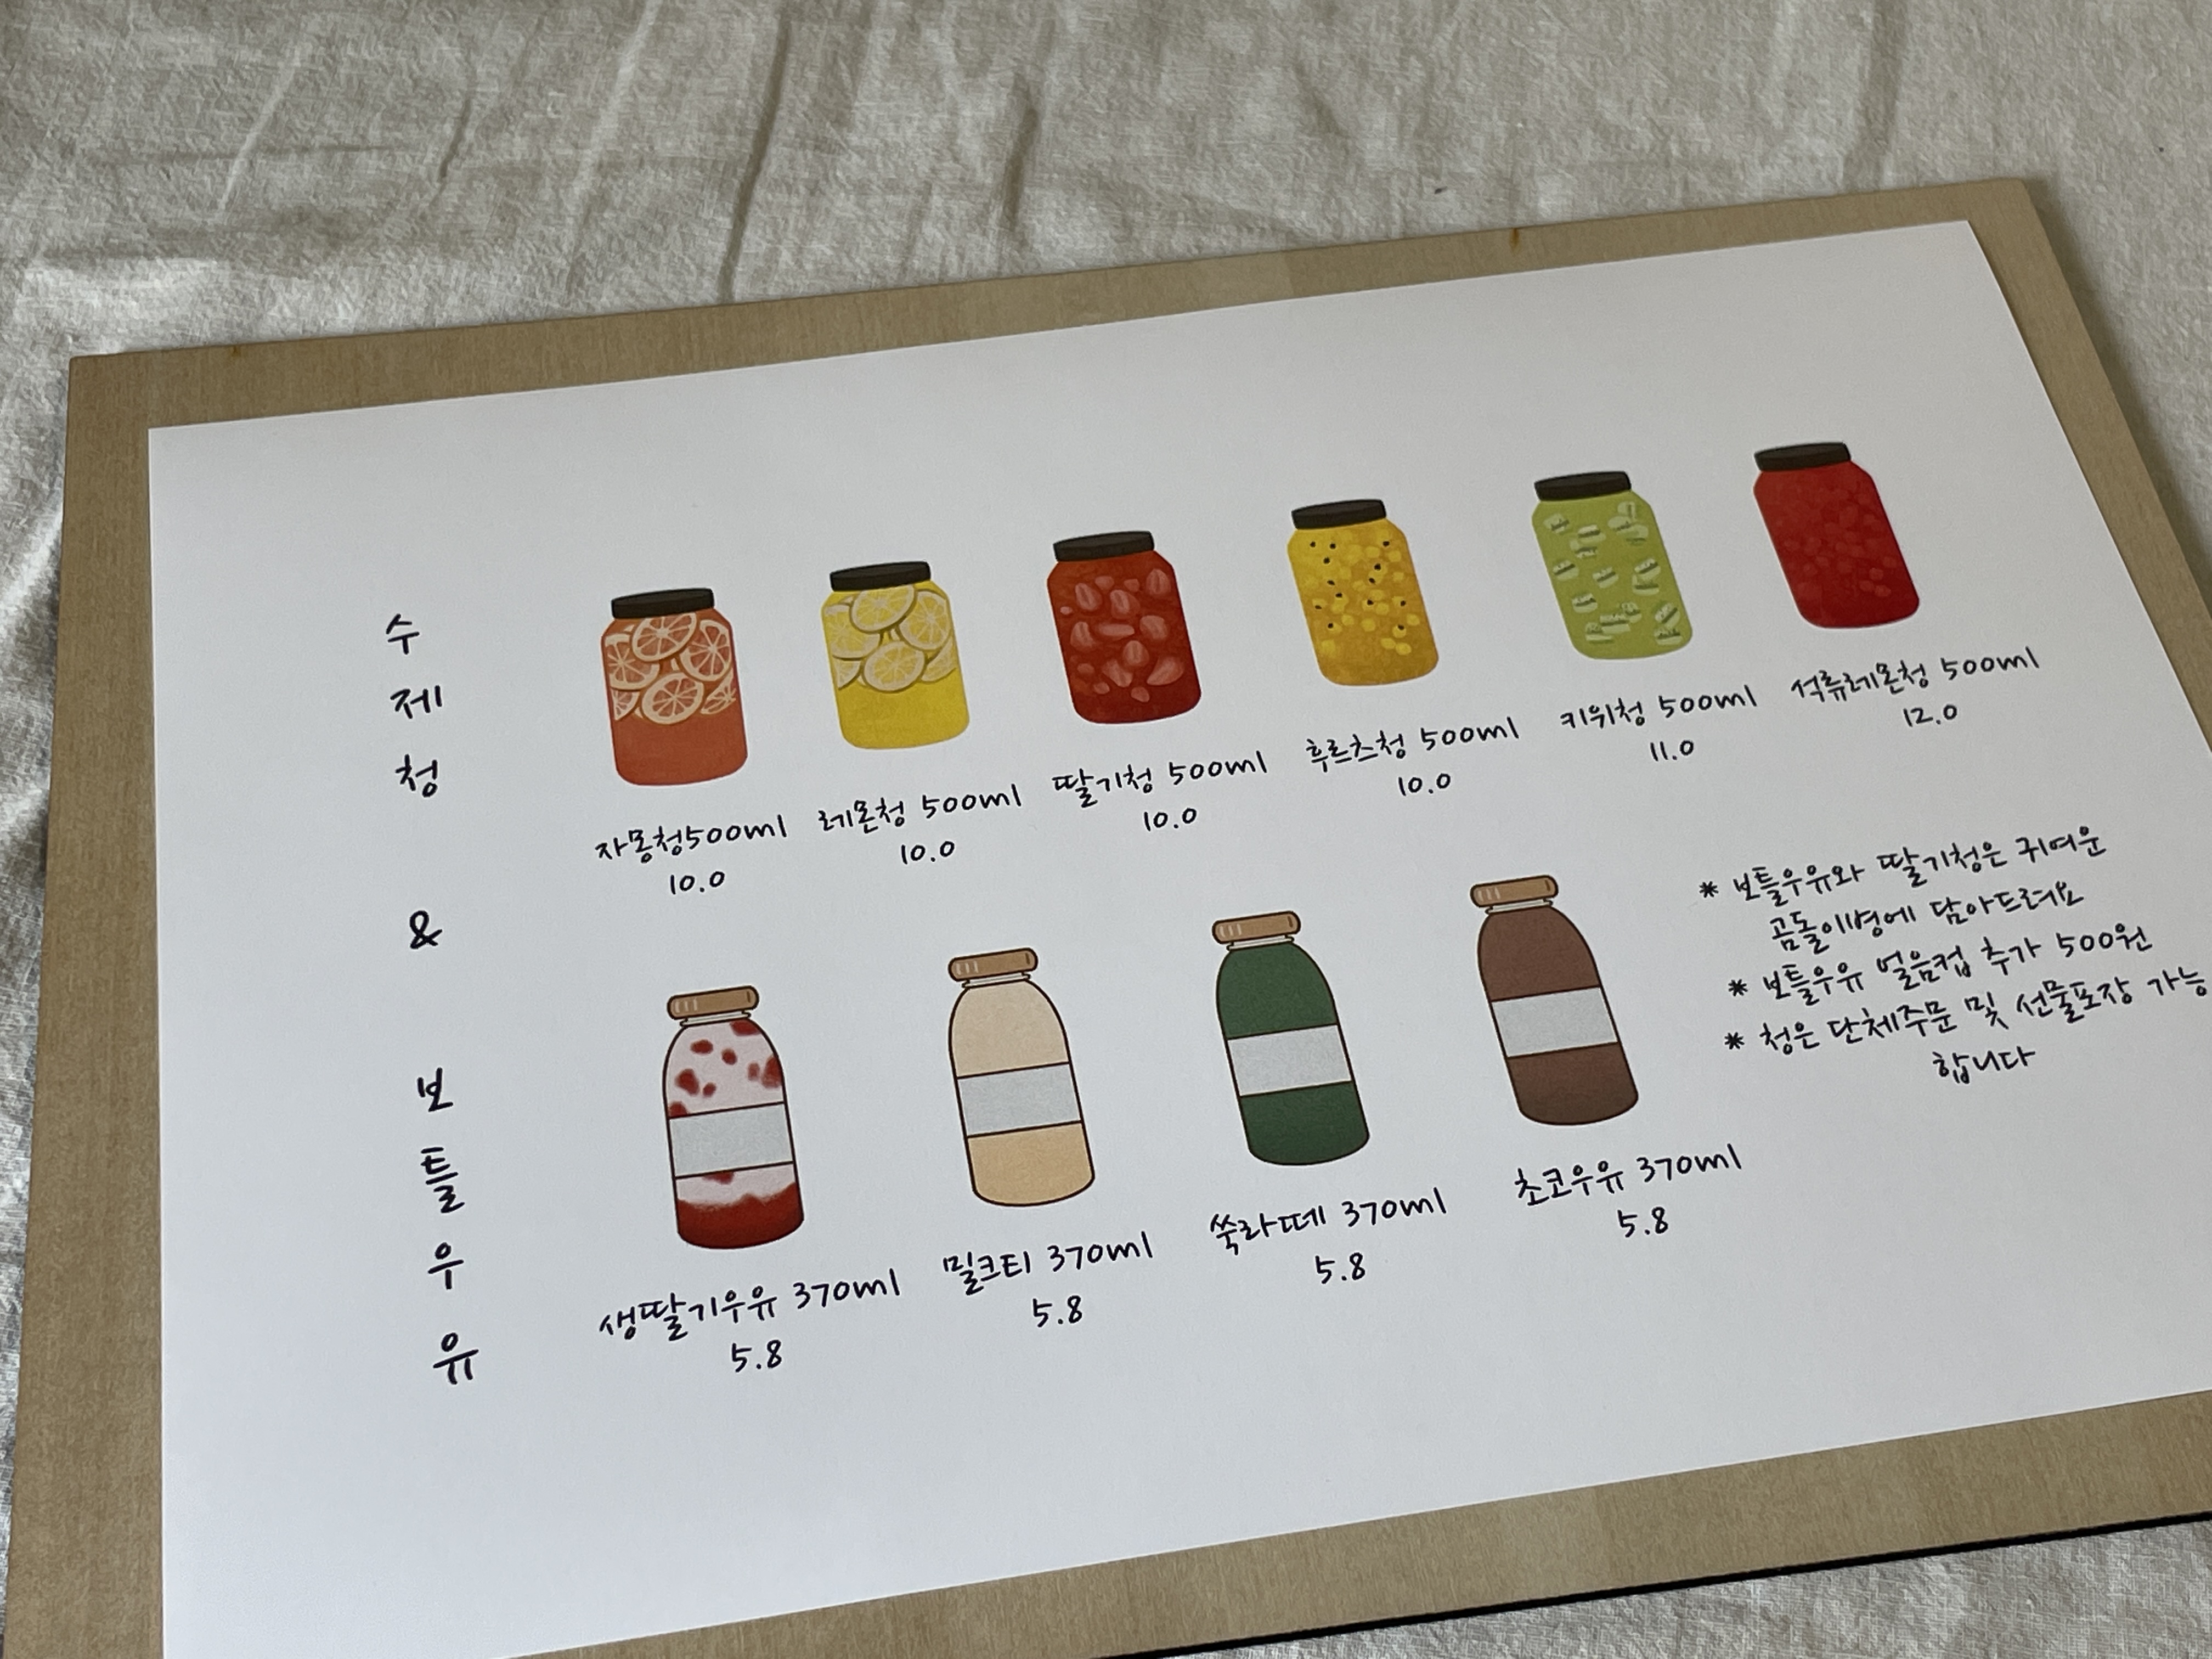 수
제
청
&
보
틀
우
유
자몽청500ml
10.0
레몬청 500ml
10.0
딸기청 500ml
10.0
후르츠청 500ml
10.0
키위청 500ml
11.0
석류레몬청 500ml
12.0
생딸기우유 370ml
5.8
밀크티 370ml
5.8
쑥라떼 370ml
5.8
초코우유 370ml
5.8
* 보틀우유와 딸기청은 귀여운
곰돌이병에 담아드려요
* 보틀우유 얼음컵 추가 500원
* 청은 단체주문 및 선물포장 가능
합니다